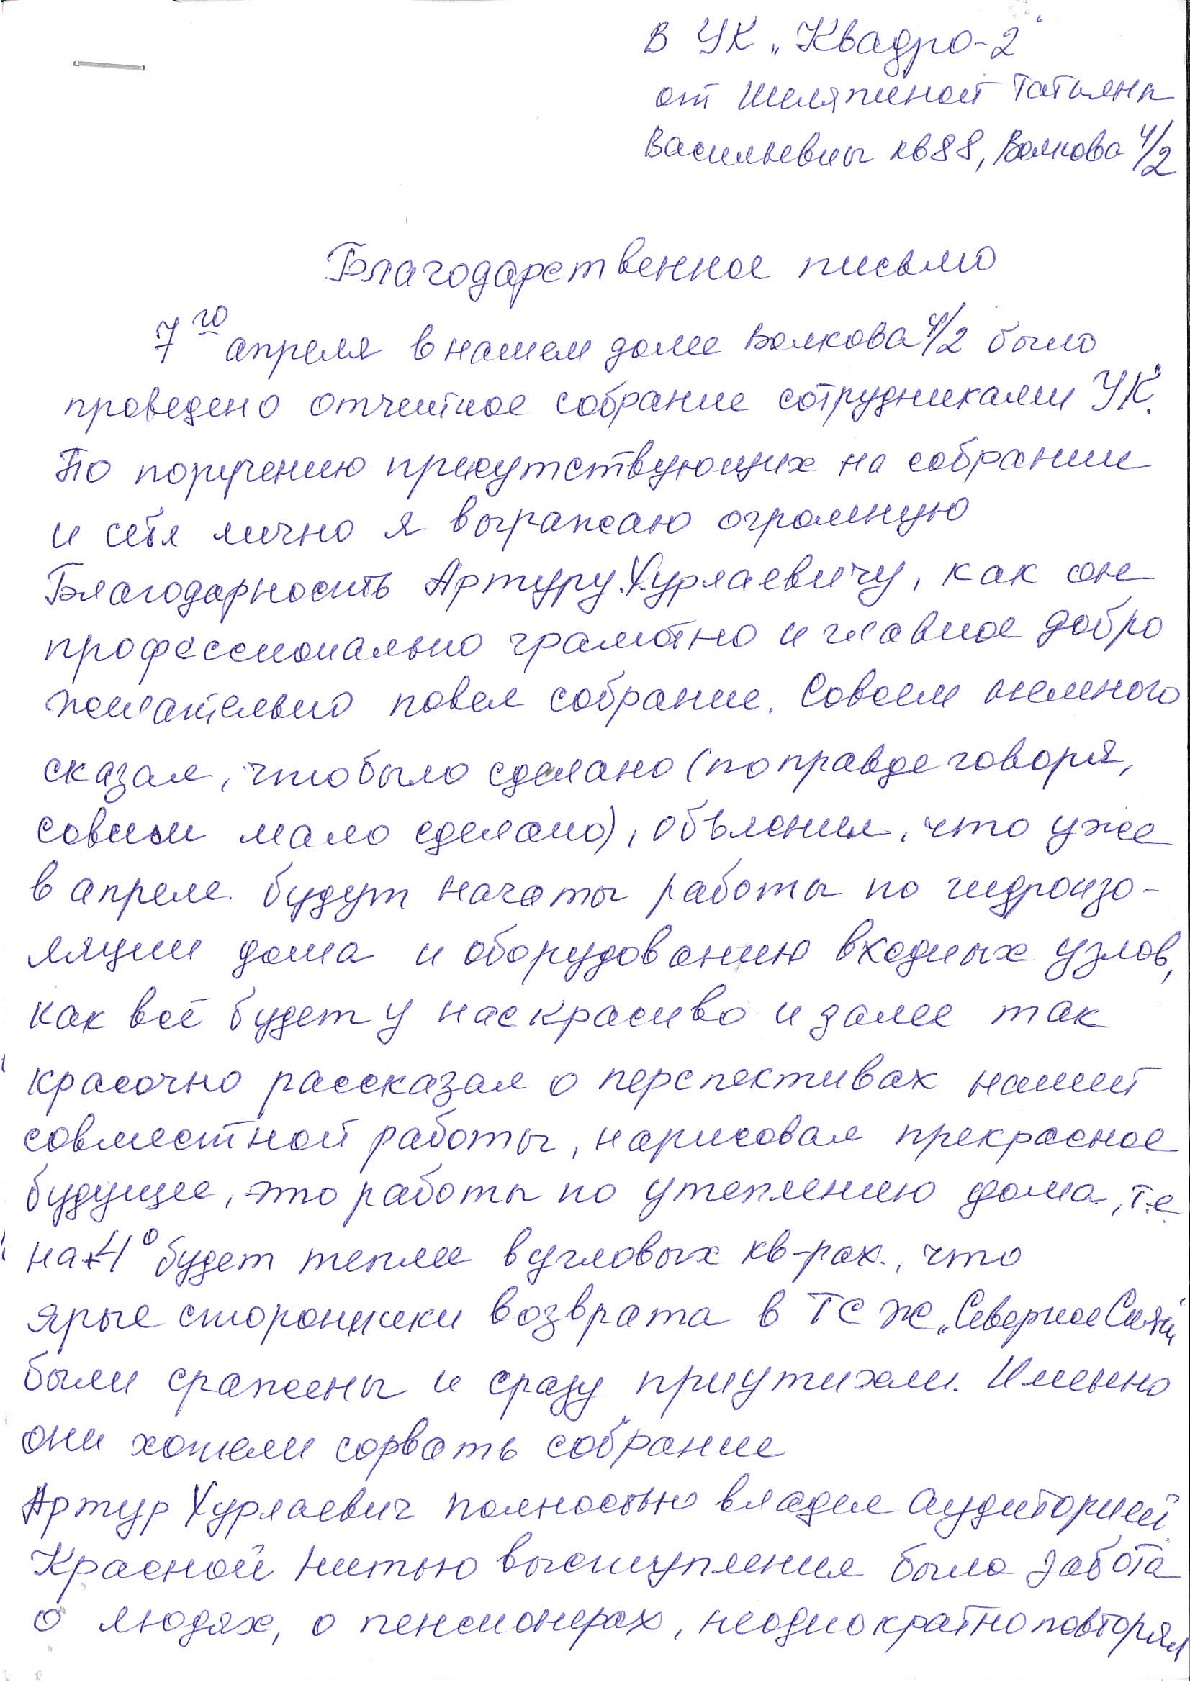 В УК „Квадро-2"
от Шиляпиной Татьяны
Васильевны кв 88, Волкова 4/2
Благодарственное письмо
7го апреля в нашем доме Волкова 4/2 было
проведено отчетное собрание сотрудниками УК.
По поручению присутствующих на собрании
и себя лично я выражаю огромную
Благодарность Артуру Хурлаевичу, как он
профессионально грамотно и главное добро
желательно повел собрание. Совсем немного
сказал, что было сделано (по правде говоря,
совсем мало сделано), объяснил, что уже
в апреле будут начаты работы по гидроизо-
ляции дома и оборудованию входных узлов,
как всё будет у нас красиво и далее так
красочно рассказал о перспективах нашей
совместной работы, нарисовал прекрасное
будущее, это работы по утеплению дома, т.е.
на 4° будет теплее в угловых кв-рах, что
ярые сторонники возврата в ТСЖ „Северное
были сражены и сразу приутихли. Именно
они хотели сорвать собрание
Артур Хурлаевич полностью владел аудиторией
Красной нитью выступления было забота
о людях, о пенсионерах, неоднократно повторял